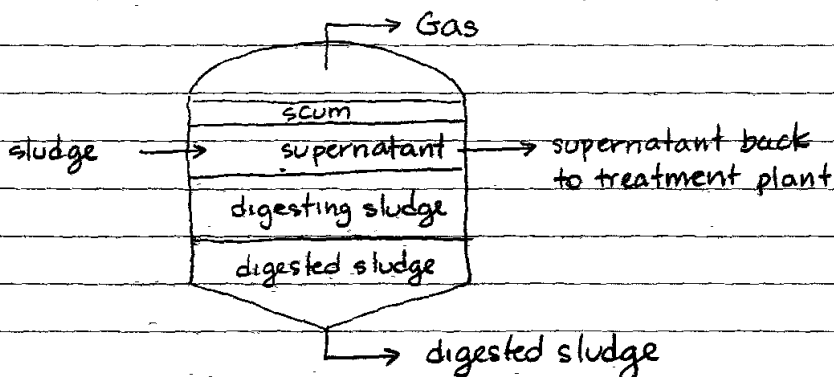 Gas
scum
sludge
supernatant
supernatant back
to treatment plant
digesting sludge
digested sludge
digested sludge